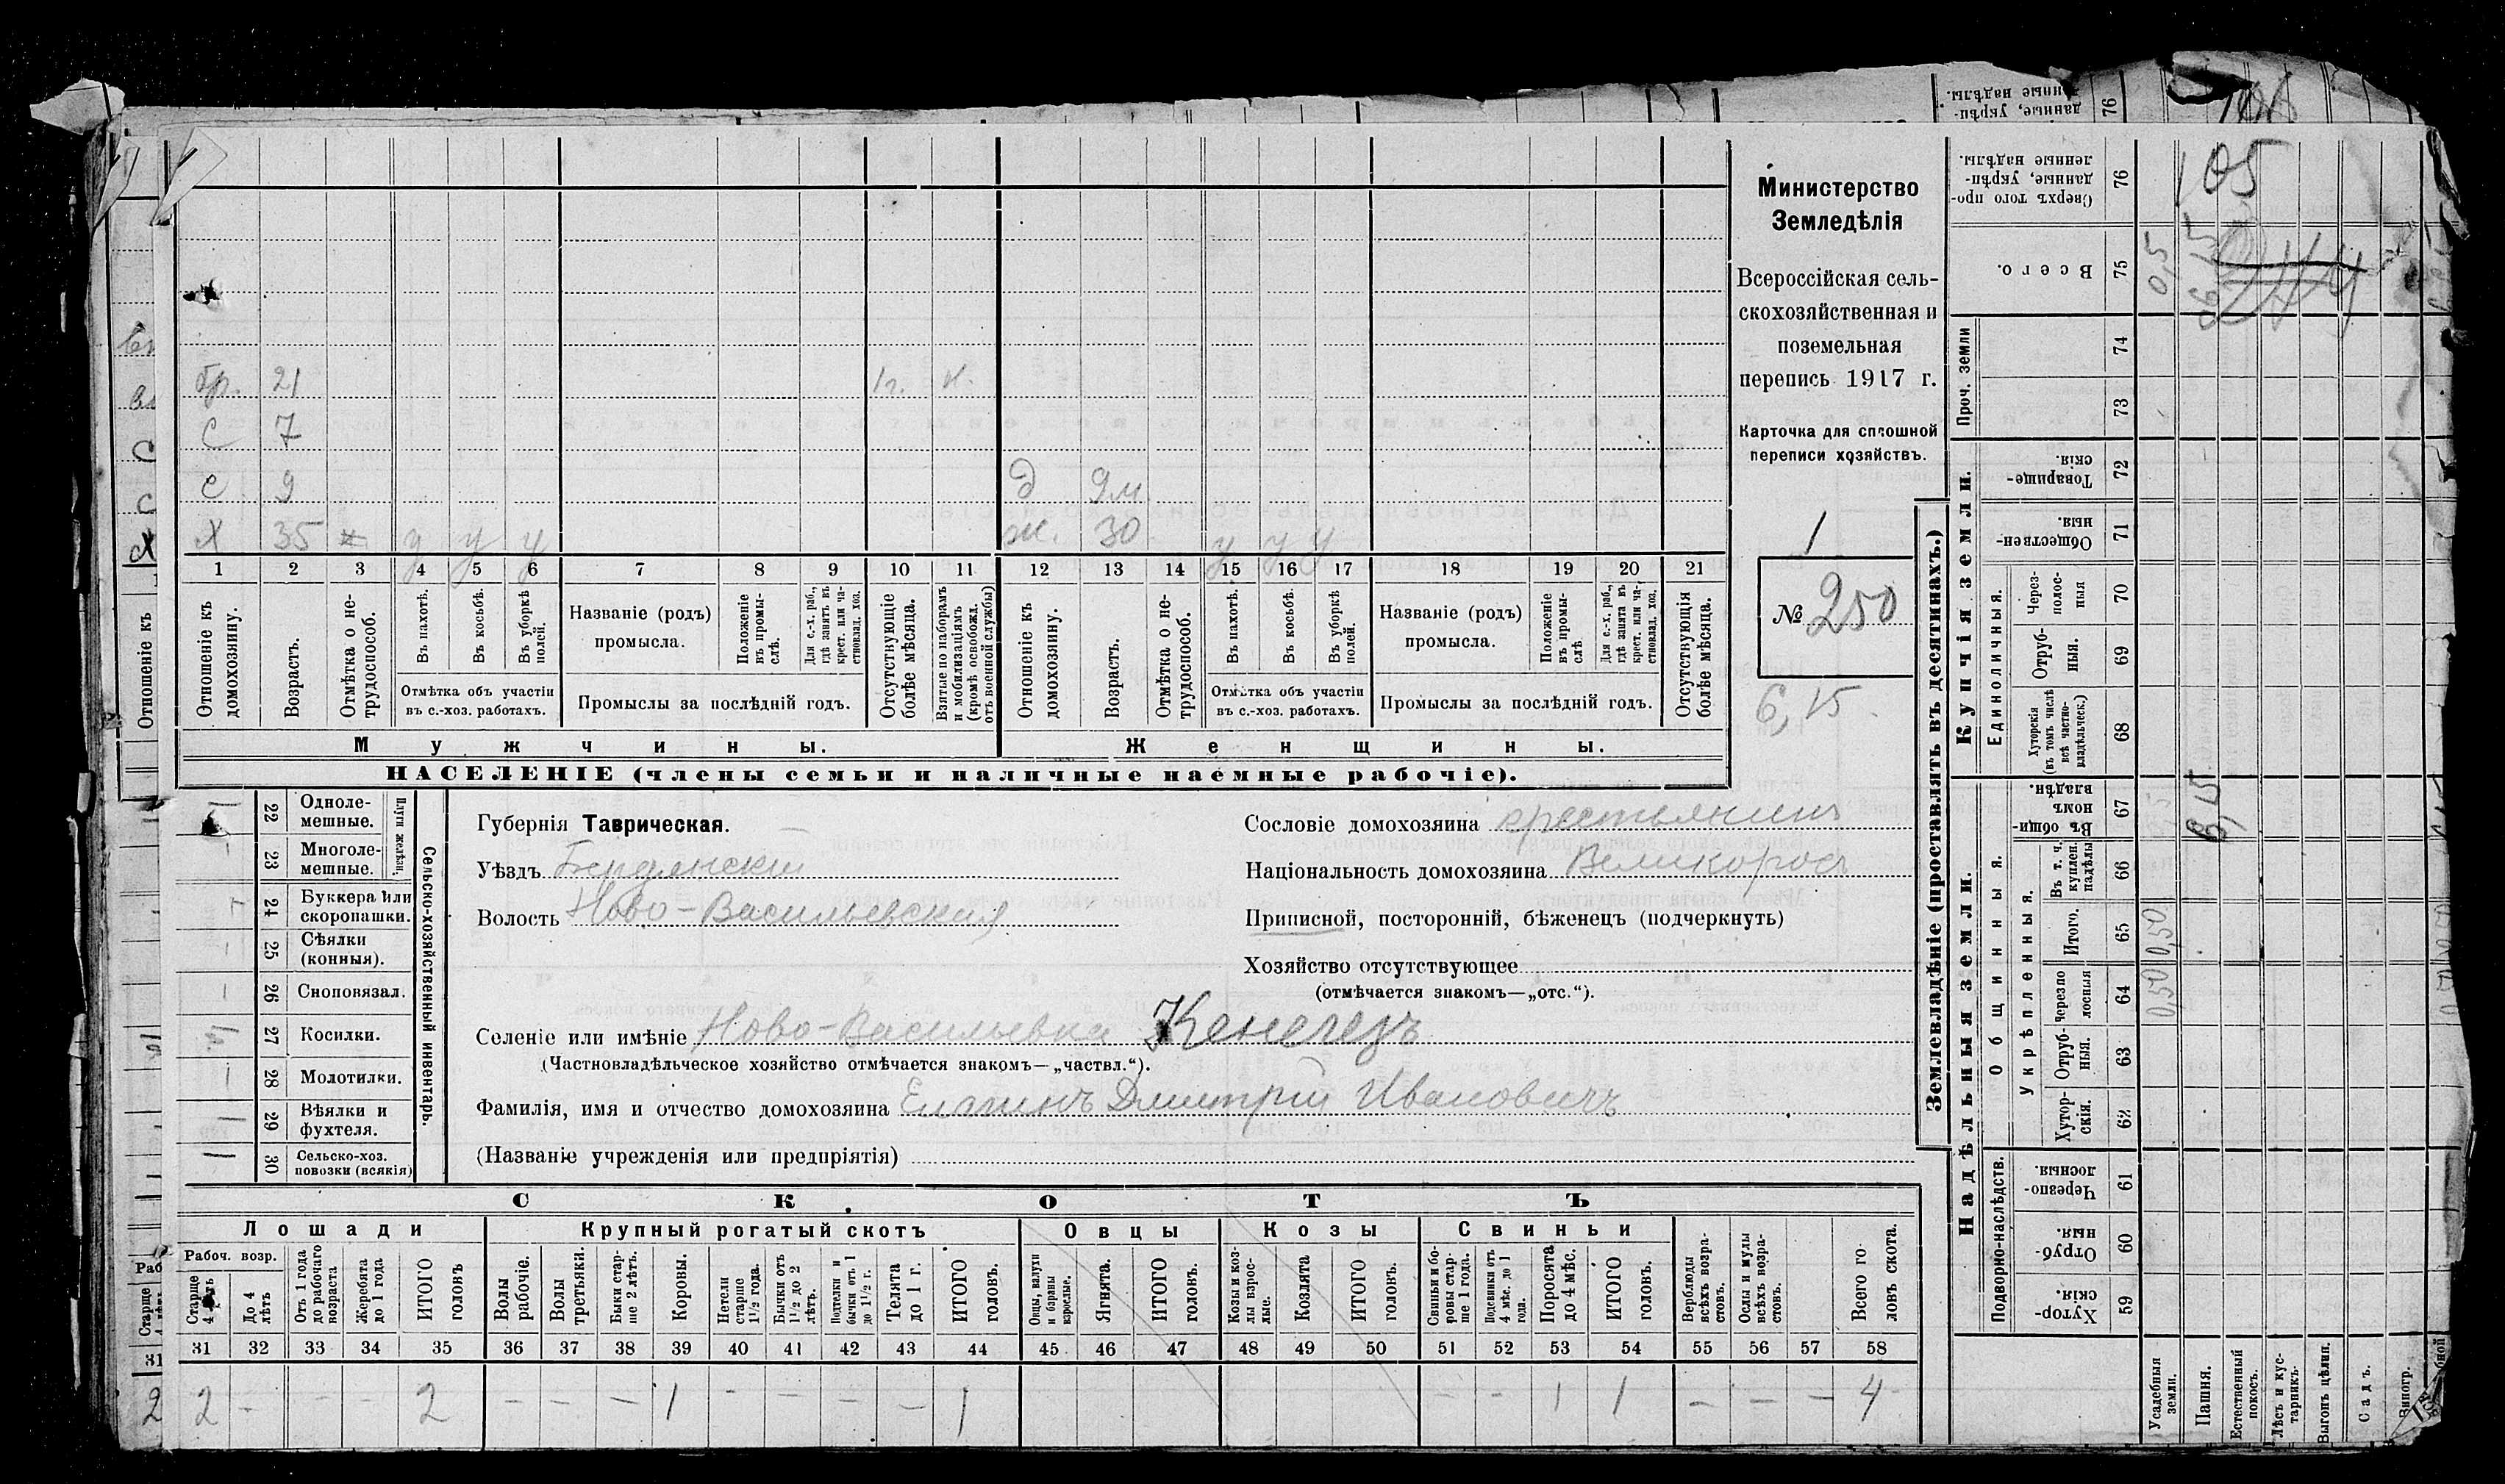 Министерство
Земледѣлія
Всероссійская сель-
скохозяйственная и
поземельная
перепись 1917 г.
Карточка для сплошной
переписи хозяйствъ.
1
№ 250
6,15
бр. 21 1г. н.
С 7
С 9 д 9 м
Х 35 у у у ж. 30 у у у
1 2 3 4 5 6 7 8 9 10 11 12 13 14 15 16 17 18 19 20 21
Отношеніе къ домохозяину.
Возрастъ.
Отмѣтка о не-трудоспособ.
Въ пахотѣ.
Въ косьбѣ.
Въ уборкѣ полей.
Отмѣтка объ участіи
въ с.-хоз. работахъ.
Названіе (родъ)
промысла.
Положеніе въ промы-слѣ.
Для с.-х. раб., гдѣ занятъ въ крест. или ча-стновлад. хоз.
Промыслы за послѣдній годъ.
Отсутствующіе болѣе мѣсяца.
Взятые по наборамъ и мобилизаціямъ (кромѣ освобожд. отъ военной службы)
Отношеніе къ домохозяину.
Возрастъ.
Отмѣтка о не-трудоспособ.
Въ пахотѣ.
Въ косьбѣ.
Въ уборкѣ полей.
Отмѣтка объ участіи
въ с.-хоз. работахъ.
Названіе (родъ)
промысла.
Положеніе въ промы-слѣ
Для с.-х. раб., гдѣ занята въ крест. или ча-стновлад. хоз.
Промыслы за послѣдній годъ.
Отсутствующія болѣе мѣсяца.
Мужчины. Женщины.
НАСЕЛЕНІЕ (члены семьи и наличные наемные рабочіе).
Сельско-хозяйственный инвентарь.
Плуги желѣзн.
22 Одноле-
мешные.
23 Многоле-
мешные.
24 Буккера или
скоропашки.
25 Сѣялки
(конныя).
26 Сноповязал.
27 Косилки.
28 Молотилки.
29 Вѣялки и
фухтеля.
30 Сельско-хоз.
повозки (всякія)
Губернія Таврическая.
Уѣздъ Бердянскій
Волость Ново-Васильевская
Сословіе домохозяина крестьянинъ
Національность домохозяина Великоросъ
Приписной, посторонній, бѣженецъ (подчеркнуть)
Хозяйство отсутствующее
(отмѣчается знакомъ—„отс.“).
Селеніе или имѣніе Ново-Васильевка Кенегезъ
(Частновладѣльческое хозяйство отмѣчается знакомъ—„частвл.“).
Фамилія, имя и отчество домохозяина Елагинъ Дмитрій Ивановичъ
(Названіе учрежденія или предпріятія)
СКОТЪ
Лошади Крупный рогатый скотъ Овцы Козы Свиньи
Рабоч. возр.
Старше 4 лѣтъ
До 4 лѣтъ
Отъ 1 года до рабочаго возраста
Жеребята до 1 года
ИТОГО головъ
Волы рабочіе.
Волы третьяки.
Быки стар-ше 2 лѣтъ.
Коровы.
Нетели старше 1½ года.
Бычки отъ 1½ до 2 лѣтъ.
Подтелки и бычки отъ 1 до 1½ г.
Телята до 1 г.
ИТОГО головъ.
Овцы, валухи и бараны взрослые.
Ягнята.
ИТОГО головъ.
Козы и коз-лы взрос-лые.
Козлята
ИТОГО головъ.
Свиньи и бо-ровы стар-ше 1 года.
Подсвинки отъ 4 мѣс. до 1 года.
Поросята до 4 мѣс.
ИТОГО головъ.
Верблюды всѣхъ возра-стовъ.
Ослы и мулы всѣхъ возра-стовъ.
Всего го-ловъ скота.
31 32 33 34 35 36 37 38 39 40 41 42 43 44 45 46 47 48 49 50 51 52 53 54 55 56 57 58
2 - - - 2 - - - 1 - - - - 1 - - 1 1 - - - 4
Землевладѣніе (проставлять въ десятинахъ.)
Надѣльныя земли. Купчія земли. Проч. земли
Подворно-наслѣдств.
Общинныя.
Укрѣпленныя.
Единоличныя.
59 Хутор-скія.
60 Отруб-ныя.
61 Черезпо-лосныя.
62 Хутор-скія.
63 Отруб-ныя.
64 Черезпо-лосныя
65 Итого.
66 Въ т. ч. куплен. надѣлы
67 Въ общин-номъ владѣн.
68 Хуторскія (въ томъ числѣ всѣ частно-владѣльческ.)
69 Отруб-ныя.
70 Через-полос-ныя
71 Обществен-ныя.
72 Товарище-скія.
73
74
75 Всего.
76 Сверхъ того про-данные, укрѣп-ленные надѣлы.
Усадебныя земли.
Пашня.
Естественный покосъ.
Лѣсъ и кус-тарникъ.
Выгонъ цѣлин.
Садъ.
Виногр.
0,50 0,50 0,5
6,15 6,15
105